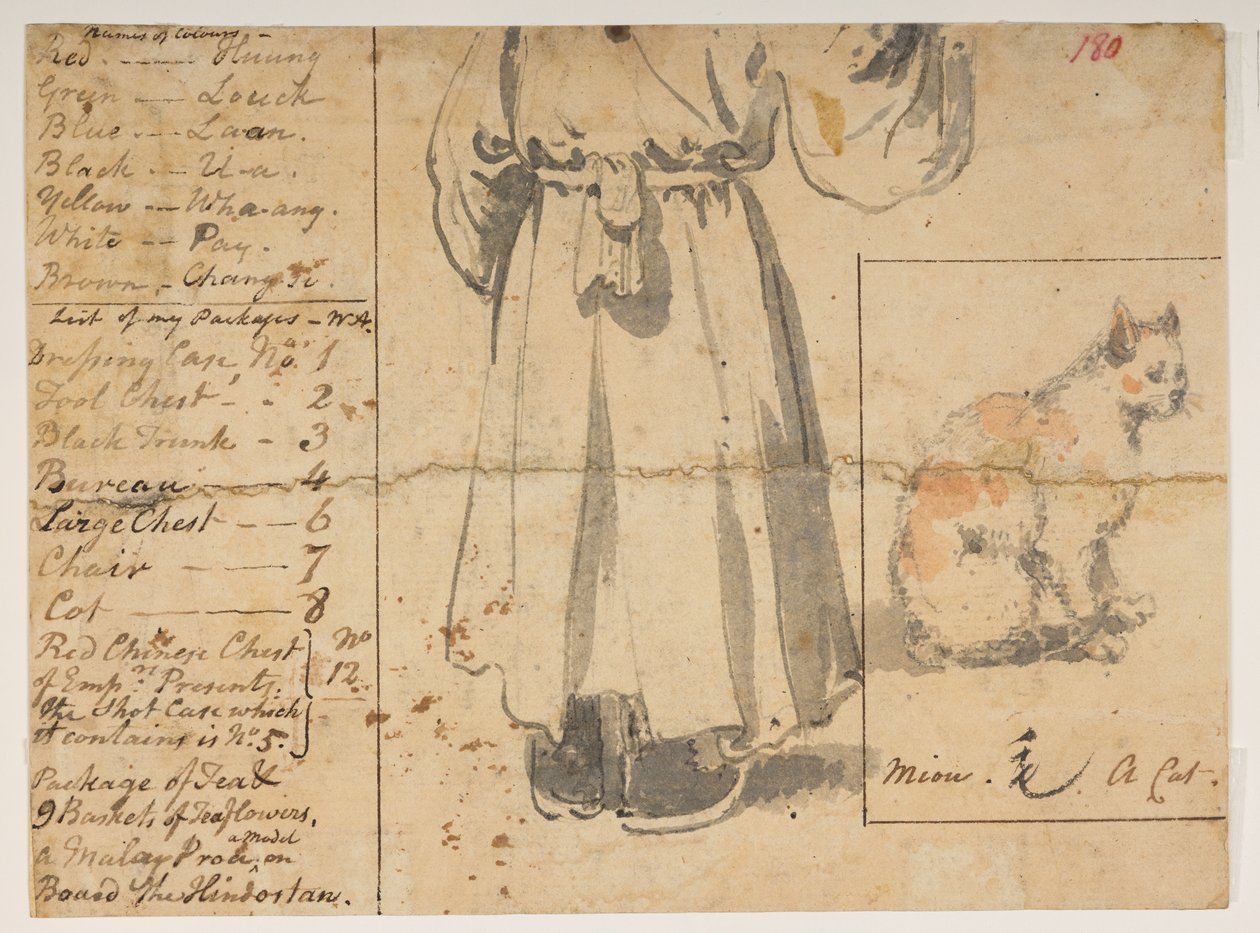 Names of Colours -
Red. ---- Huung
Green --- Louck
Blue --- Laan.
Black. -- U-a.
Yellow -- Wha-ang.
White -- Pay.
Brown. - Chang-
List of my Packages - W.A.
Dressing Case, No. 1
Tool Chest - - 2
Black Trunk - 3
Bureau --- 4
Large Chest --- 6
Chair - --- 7
Cot ---- 8
Red Chinese Chest
of Empr's Presents. No 12.
the Shot Case which
it contains is No. 5.
Package of Tea &
9 Baskets of Teaflowers,
a Malay Proa, a Model on
Board the Hindostan.
180
Miou. A Cat.